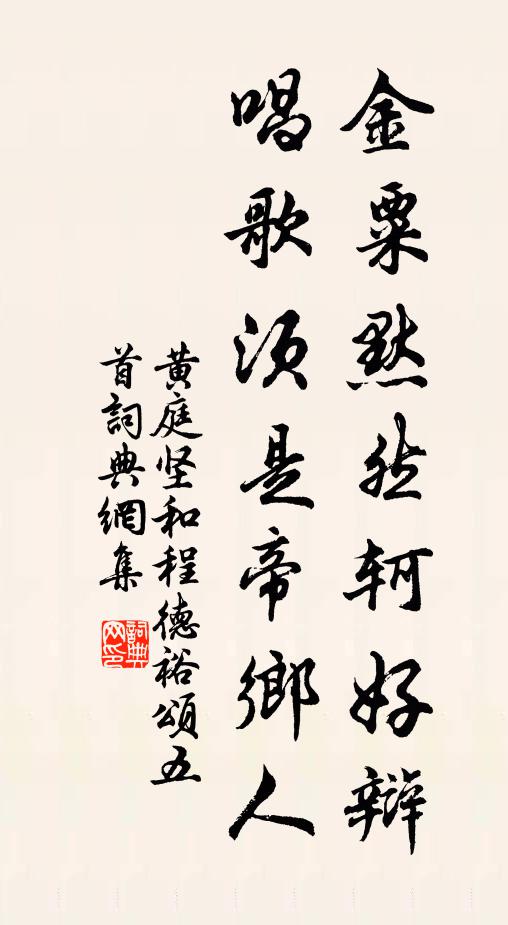 金粟默然轲好辩
唱歌须是帝鄉人
黄庭坚和程德裕頌五
首詞典網集
詞典网印